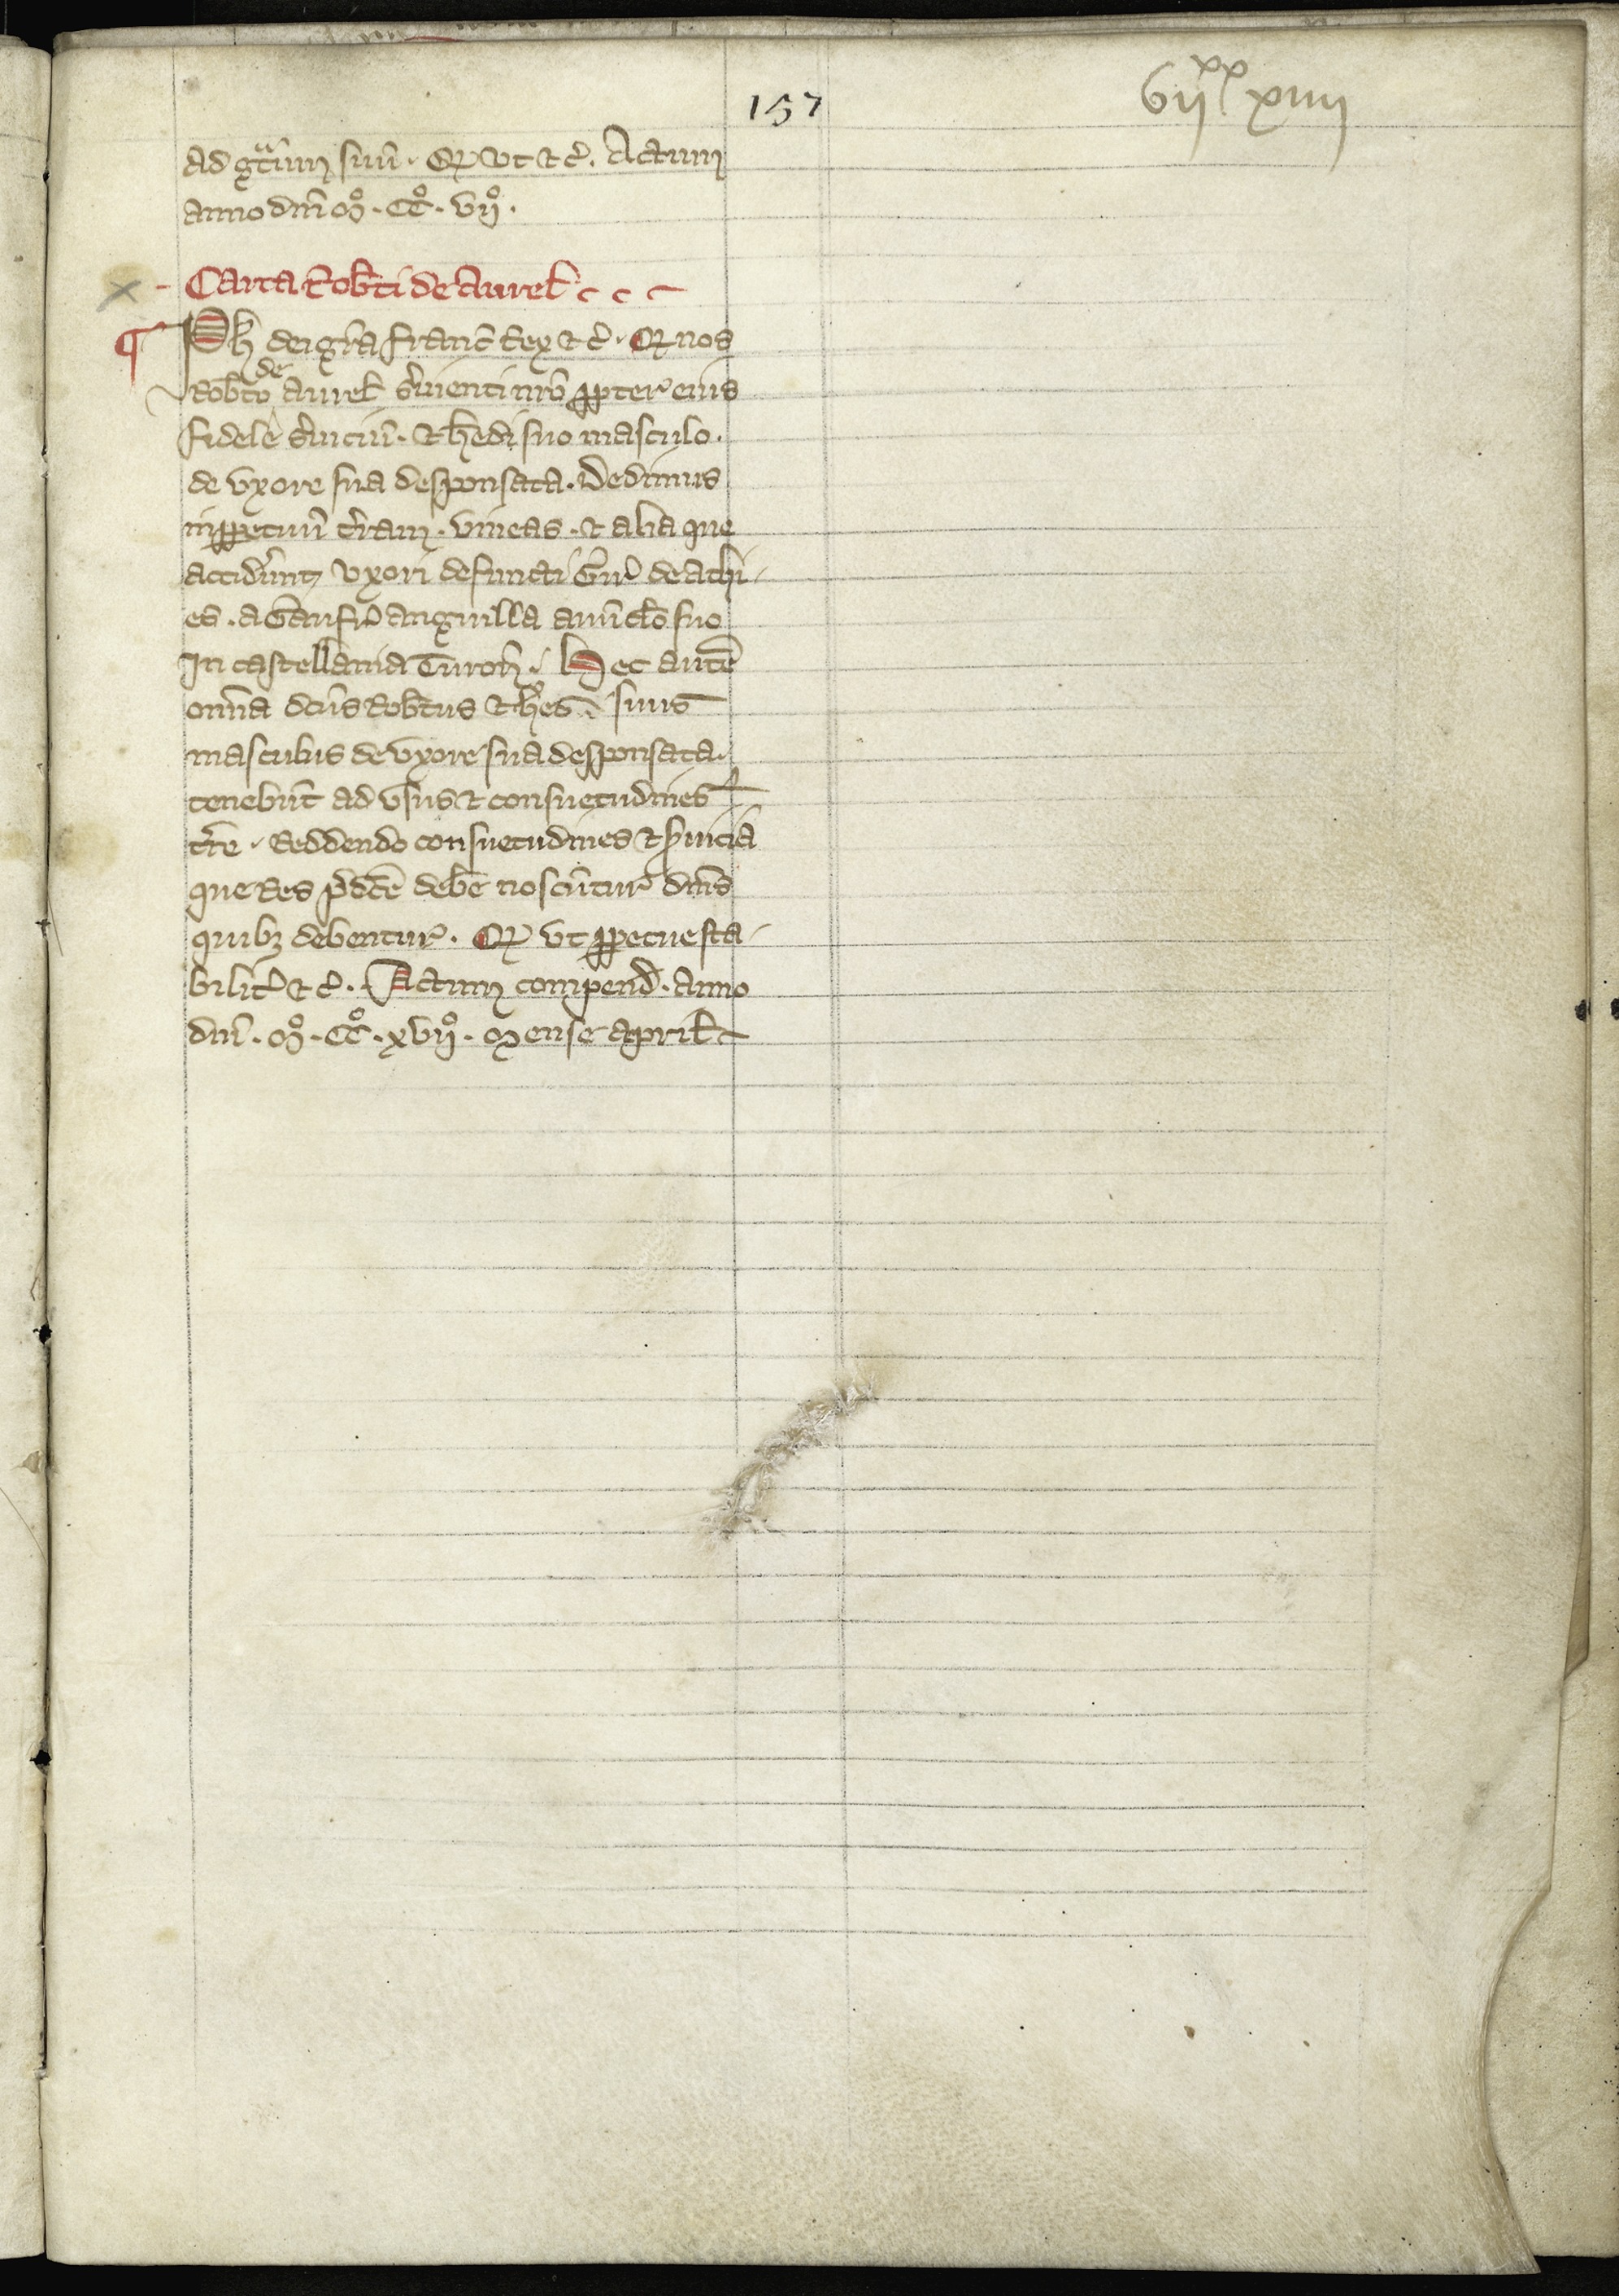 157
vij^xx xiiij
ad gͣtum̄ suū. Qd̛ vt ⁊ c̃. Actum
anno dn̄i mͦ. ccͦ. vijͦ.
Carta Rob̄ti de Aurel̃
Ph̃ dei gr̄a franc̄ Rex ⁊ c̃. Qd̛ nos
Rob̄to de aurel̃ s̃uienti nr̄o ꝓpter eius
fidele s̃uiciū. ⁊ h̃edi suo masculo.
de vxore sua desponsata. Dedimus
inꝑpetuū t̃ram. vineas. ⁊ alia que
accider̃unt vxori defuncti Guil̃ de athi
es. a Gaufr̃ anguilla auūclo suo
In castellania Turon̄. Hec autē
om̄ia dc̄us Rob̄tus ⁊ h̃es suus
masculus de vxore sua desponsata.
tenebūt ad vsus ⁊ consuetudines
tr̄e. Reddendo consuetudines ⁊ s̃uicia
que res p̃dc̄e deb̃e noscūtur dn̄is
quibꝫ debentur. Qd̛ vt ꝑpetue sta
bilit̃ ⁊ c̃. Actum compend̃. anno
dn̄i. mͦ. ccͦ. xvijͦ. mense april̃